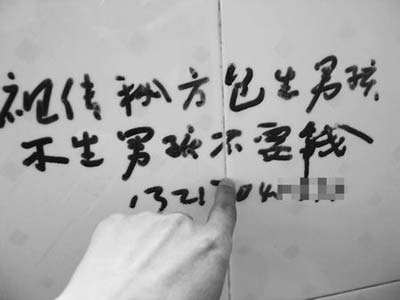 祖传秘方包生男孩
不生男孩不要钱
13217041